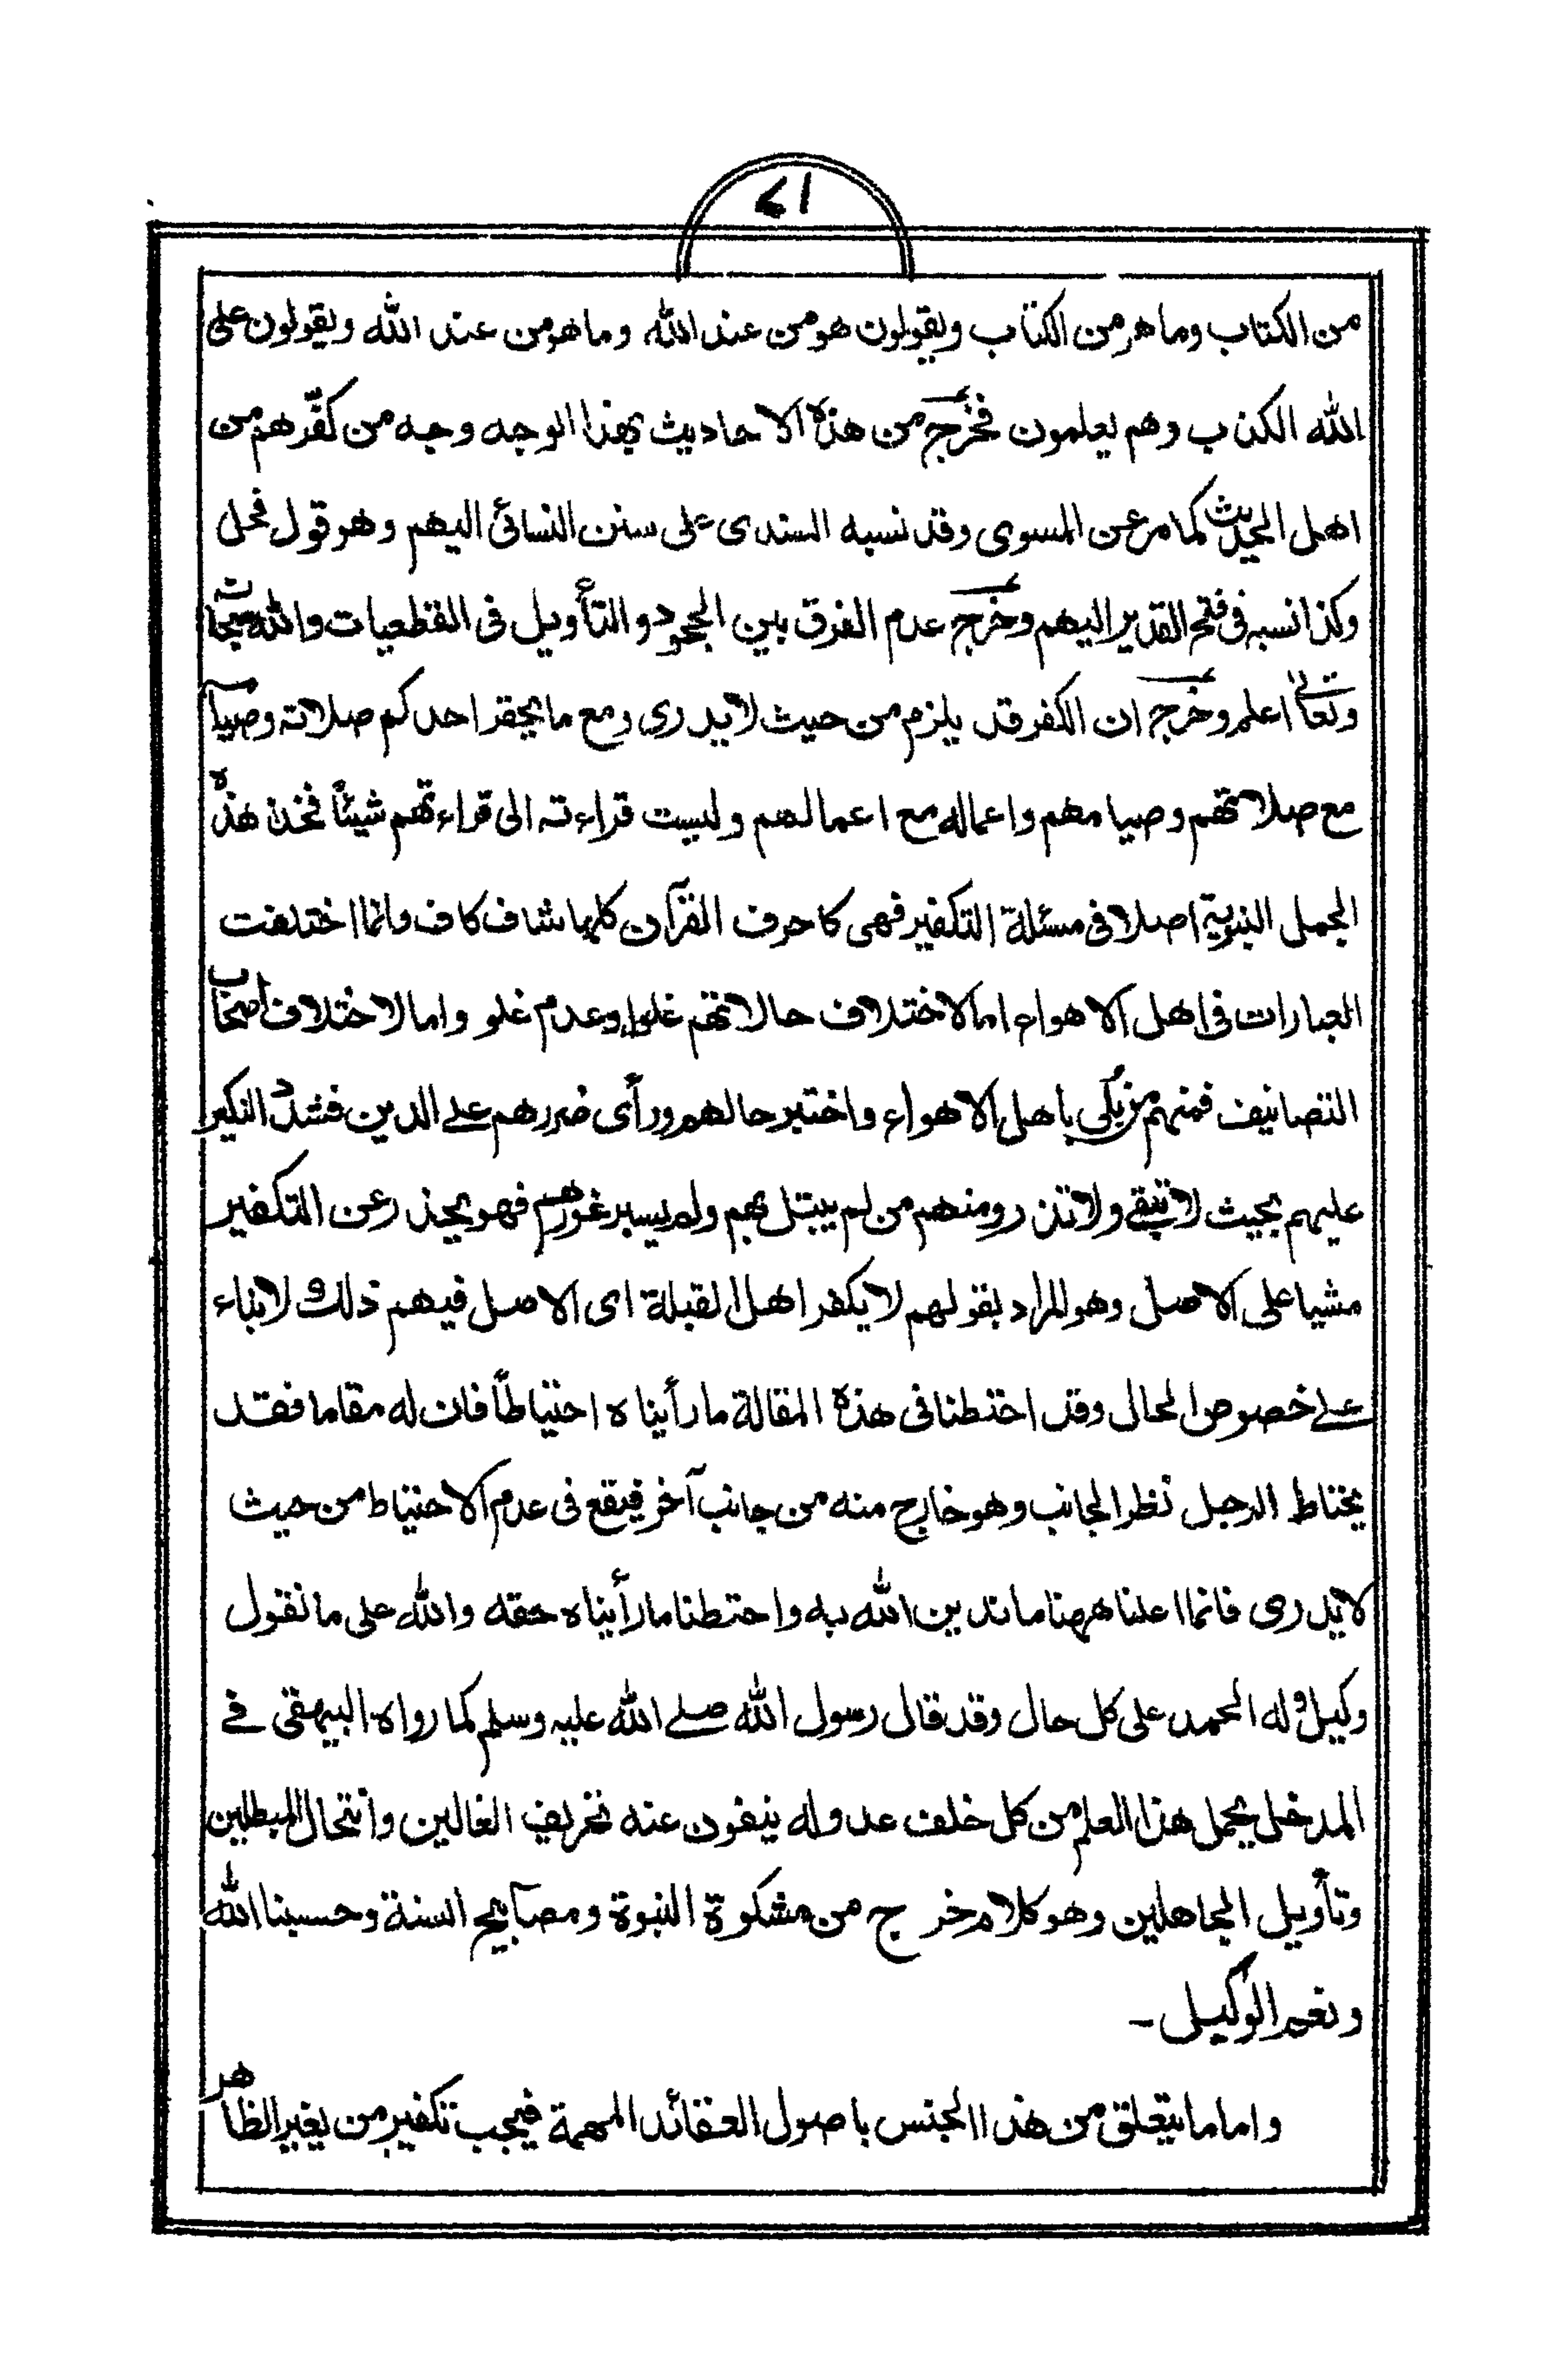 ٧١
من الكتاب وما هو من الكتاب ويقولون هو من عند الله وما هو من عند الله ويقولون على
الله الكذب وهم يعلمون فخرج من هذه الاحاديث بهذا الوجه وجه من كفّرهم من
اهل الحديث كما مر عن المسوى وقد نسبه السندى على سنن النسائى اليهم وهو قول فحل
وكذا نسبه فى فتح القدير اليهم وخرج عدم الفرق بين الجحود والتأويل فى القطعيات والله سبحانه
وتعالى اعلم وخرج ان الكفر قد يلزم من حيث لا يدرى ومع ما يحقر احدكم صلاته وصيامه
مع صلاتهم وصيامهم واعماله مع اعمالهم وليست قراءته الى قراءتهم شيئاً فخذ هذه
الجمل النبوية اصلا فى مسئلة التكفير فهى كاحرف القرآن كلها شاف كاف وانما اختلفت
العبارات فى اهل الاهواء اما لاختلاف حالاتهم غلوا وعدم غلو واما لاختلاف اصحاب
التصانيف فمنهم من بلى باهل الاهواء واختبر حالهم ورأى ضررهم على الدين فشدد النكير
عليهم بحيث لا تبقى ولا تذر ومنهم من لم يبتل بهم ولم يسبر غورهم فهو يحذر عن التكفير
مشيا على الاصل وهو المراد بقولهم لا يكفر اهل القبلة اى الاصل فيهم ذلك لا بناء
على خصوص الحال وقد احتطنا فى هذه المقالة ما رأيناه احتياطاً فان له مقاما فقد
يحتاط الرجل نظرا لجانب وهو خارج منه من جانب آخر فيقع فى عدم الاحتياط من حيث
لا يدرى فانما اعلنا ههنا ما ندين الله به واحتطنا ما رأيناه حقه والله على ما نقول
وكيل وله الحمد على كل حال وقد قال رسول الله صلى الله عليه وسلم كما رواه البيهقى فى
المدخل يحمل هذا العلم من كل خلف عدوله ينفون عنه تحريف الغالين وانتحال المبطلين
وتأويل الجاهلين وهو كلام خرج من مشكوة النبوة ومصابيح السنة وحسبنا الله
ونعم الوكيل ۔
واما ما يتعلق من هذا الجنس باصول العقائد المهمة فيجب تكفير من يغير الظاهر